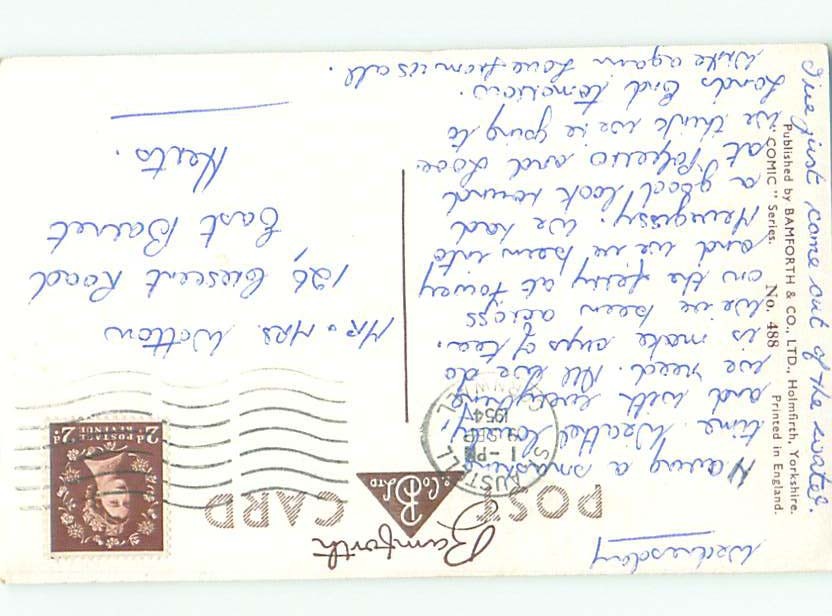 Bamforth
POST CARD
B
& Co Ld
ST AUSTELL
1 - PM
9 SEP
1954
CORNWALL
2D POSTAGE 2D
REVENUE
Wednesday
Having a smashing
time. Weather lovely,
and with everything
we need. All we do
is make cups of tea.
We've been across
on the ferry at Fowey
and we've been into
Mevagissy. We had
a good look round
at Polperro and Looe.
We think we're going to
Lands End tomorrow.
Write again Love from us all.
I've just come out of the water.
Mr & Mrs. Wotton
126, Crescent Road
East Barnet
Herts.
Published by BAMFORTH & CO., LTD., Holmfirth, Yorkshire.
"COMIC" Series. No. 488 Printed in England.